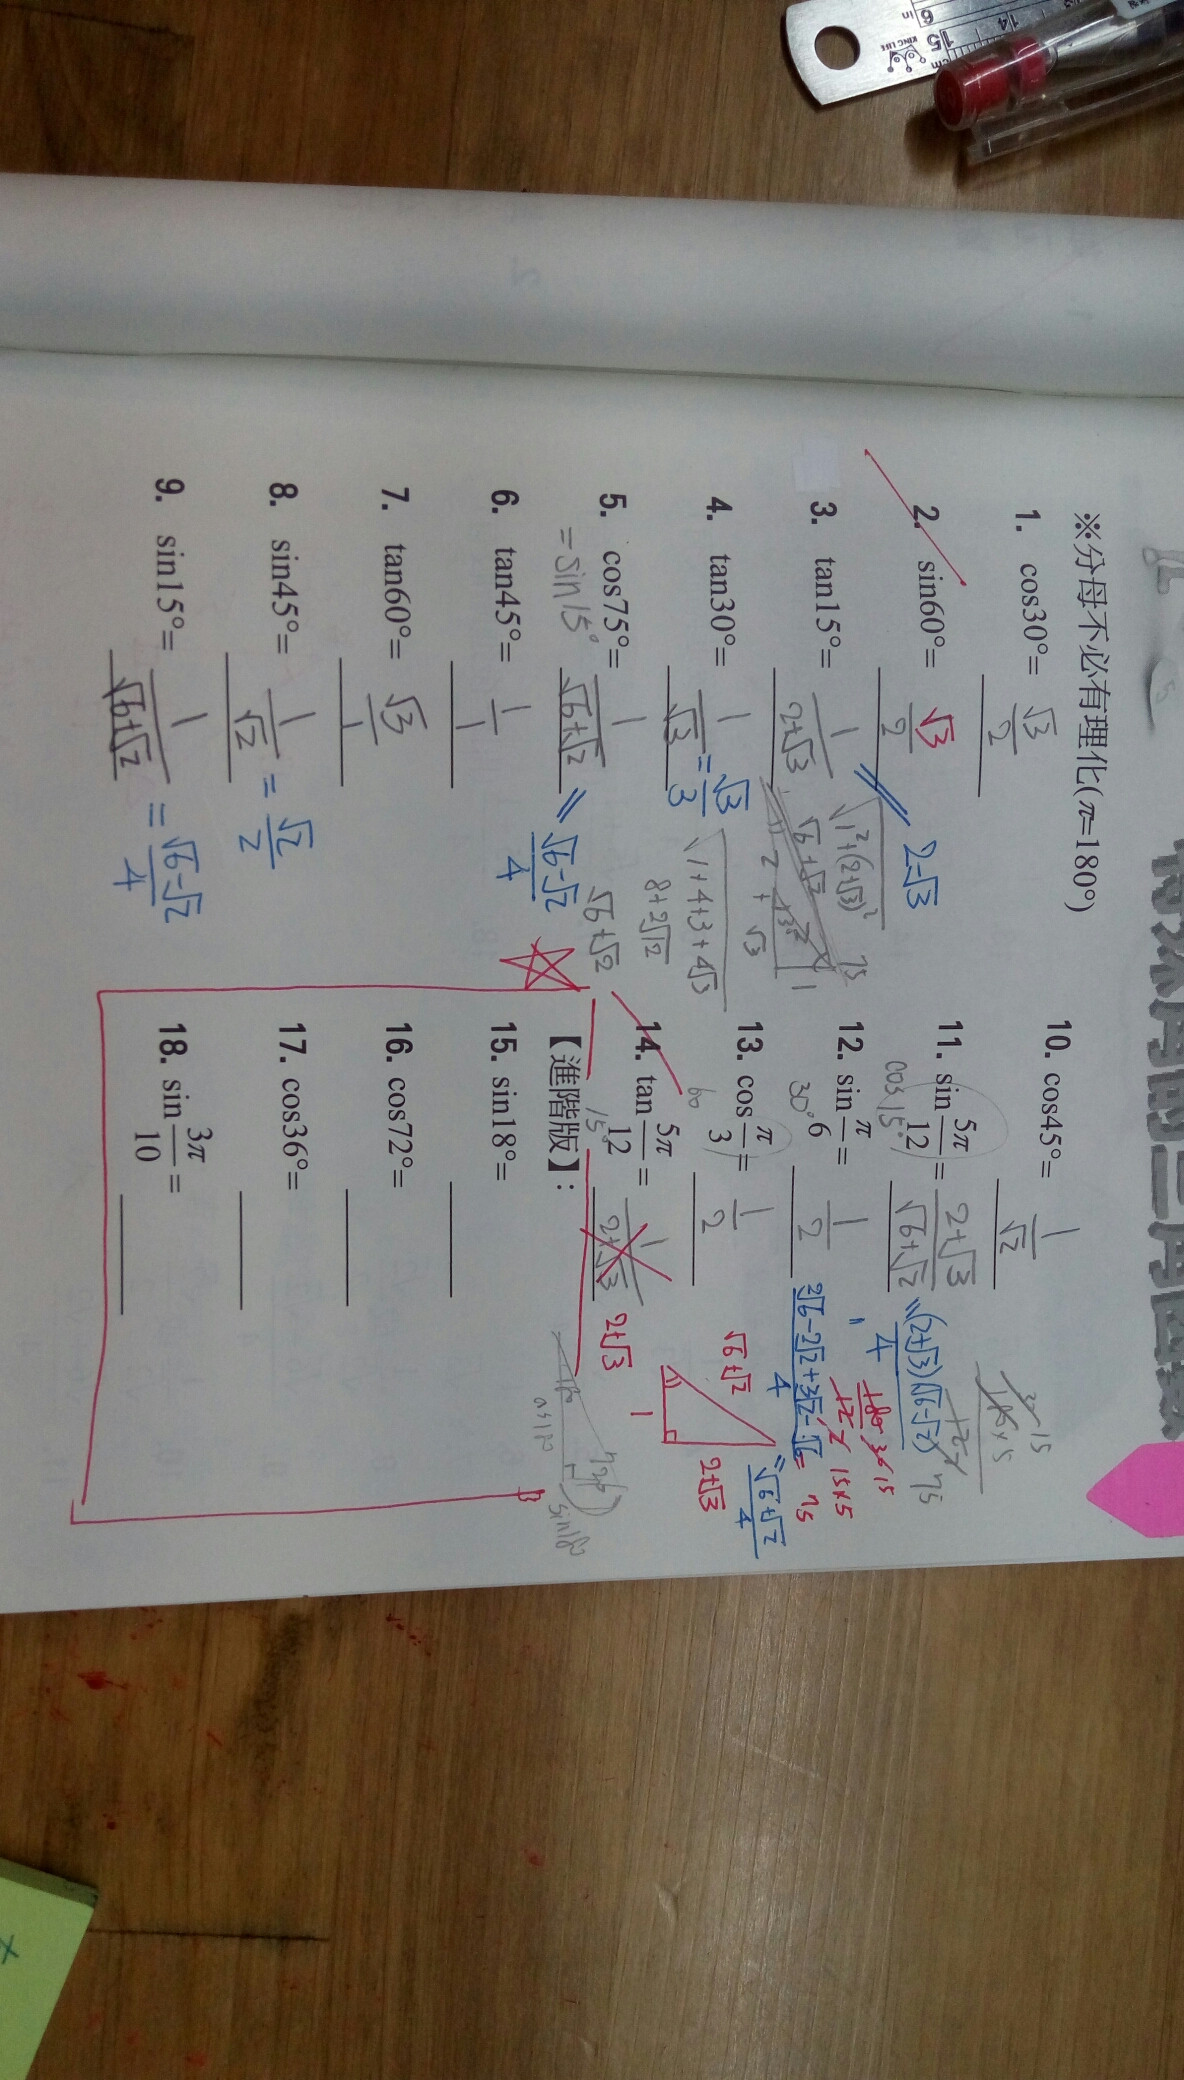 ※分母不必有理化(π=180°)
1. cos30°= √3/2
2. sin60°= √3/2
3. tan15°= 1/(2+√3) = 2-√3
√(1²+(2+√3)²)
√6+√2
75
1
2+√3
4. tan30°= 1/√3 = √3/3
√(1+4+3+4√3)
8+2√12
√6+√2
5. cos75°= 1/(√6+√2) = (√6-√2)/4
=sin15°
6. tan45°= 1/1
7. tan60°= √3/1
8. sin45°= 1/√2 = √2/2
9. sin15°= 1/(√6+√2) = (√6-√2)/4
10. cos45°= 1/√2
11. sin 5π/12 = (2+√3)/(√6+√2) = (2+√3)(√6-√2)/4
cos15°
75
12. sin π/6 = 1/2
30°
(2√6-2√2+3√2-√6)/4 = (√6+√2)/4
15×5
75
13. cos π/3 = 1/2
60
√6+√2
1
2+√3
14. tan 5π/12 = 1/(2+√3) 2+√3
15°
【進階版】:
15. sin18°=
16. cos72°=
17. cos36°=
18. sin 3π/10 =
KING LIFE
15
14
6
cm
in